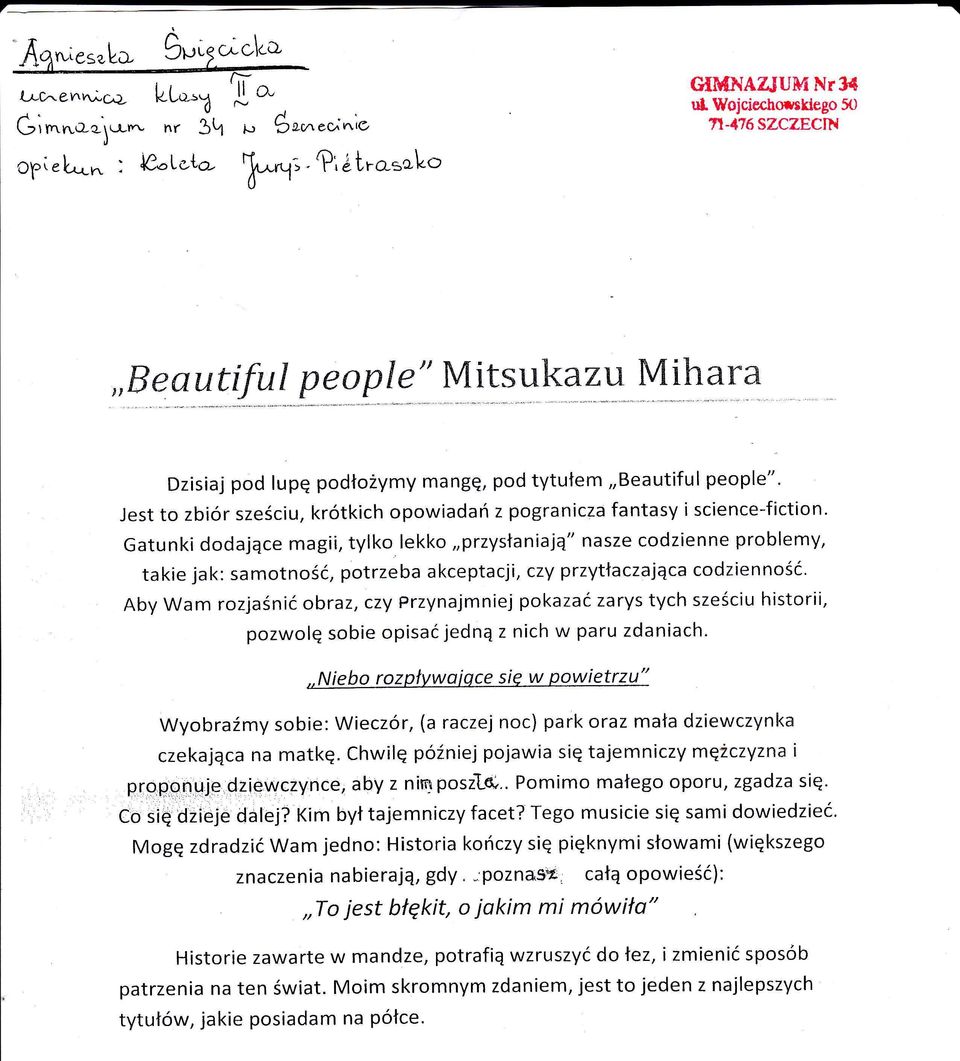 Agnieszka Święcicka
uczennica klasy II a
Gimnazjum nr 34 w Szczecinie
opiekun : Koleta Juryś-Piétraszko
GIMNAZJUM Nr 34
ul. Wojciechowskiego 50
71-476 SZCZECIN
„Beautiful people” Mitsukazu Mihara
Dzisiaj pod lupę podłożymy mangę, pod tytułem „Beautiful people”.
Jest to zbiór sześciu, krótkich opowiadań z pogranicza fantasy i science-fiction.
Gatunki dodające magii, tylko lekko „przysłaniają” nasze codzienne problemy,
takie jak: samotność, potrzeba akceptacji, czy przytłaczająca codzienność.
Aby Wam rozjaśnić obraz, czy Przynajmniej pokazać zarys tych sześciu historii,
pozwolę sobie opisać jedną z nich w paru zdaniach.
„Niebo rozpływające się w powietrzu”
Wyobraźmy sobie: Wieczór, (a raczej noc) park oraz mała dziewczynka
czekająca na matkę. Chwilę później pojawia się tajemniczy mężczyzna i
proponuje dziewczynce, aby z nim poszła.. Pomimo małego oporu, zgadza się.
Co się dzieje dalej? Kim był tajemniczy facet? Tego musicie się sami dowiedzieć.
Mogę zdradzić Wam jedno: Historia kończy się pięknymi słowami (większego
znaczenia nabierają, gdy . poznasz całą opowieść):
„To jest błękit, o jakim mi mówiła”
Historie zawarte w mandze, potrafią wzruszyć do łez, i zmienić sposób
patrzenia na ten świat. Moim skromnym zdaniem, jest to jeden z najlepszych
tytułów, jakie posiadam na półce.